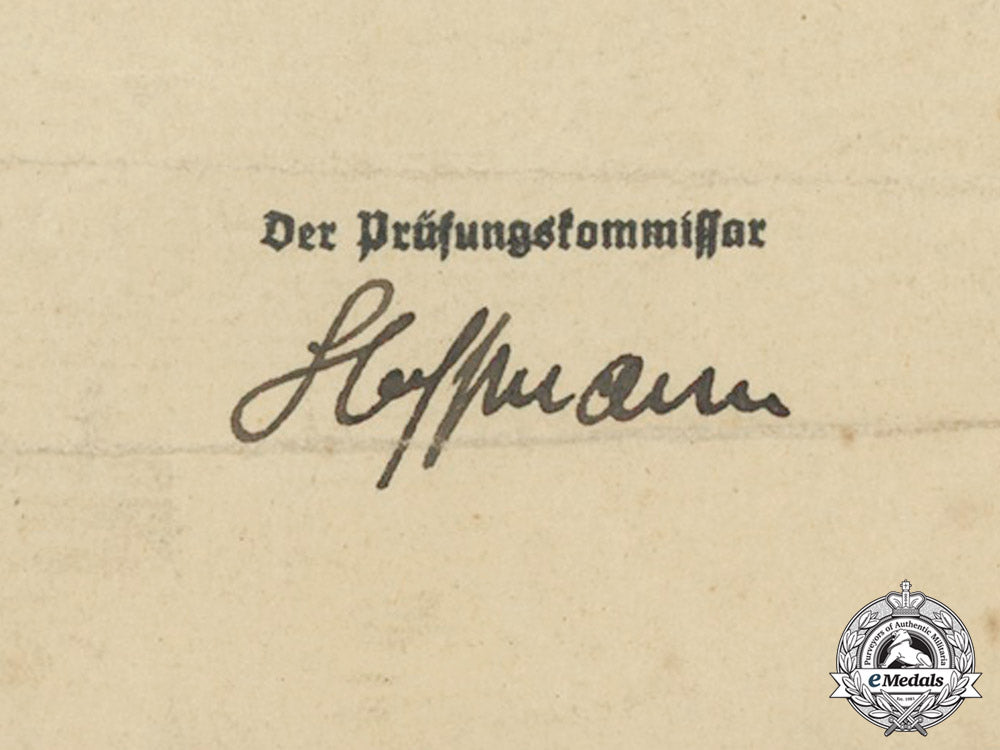 Der Prüfungskommissar
Hoffmann
Purveyors of Authentic Militaria
eMedals
Est. 1985